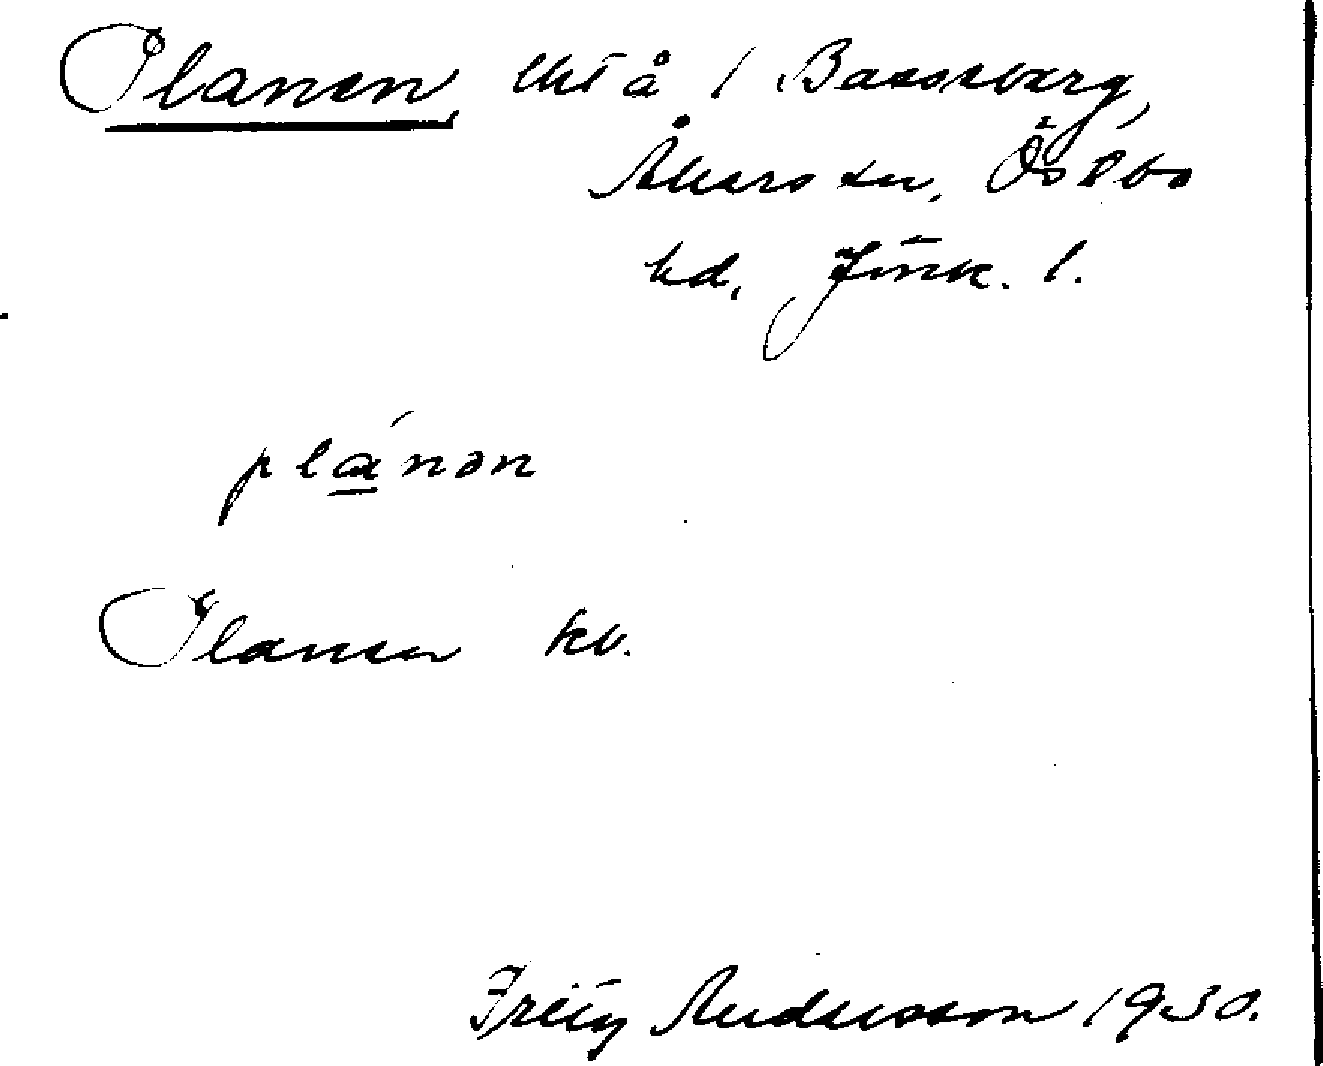 Planen, lht å 1
Åkers sn, Östbo
hd, Jönk. l.
plánən
Planen kv.
Fritz Andersson 1930.